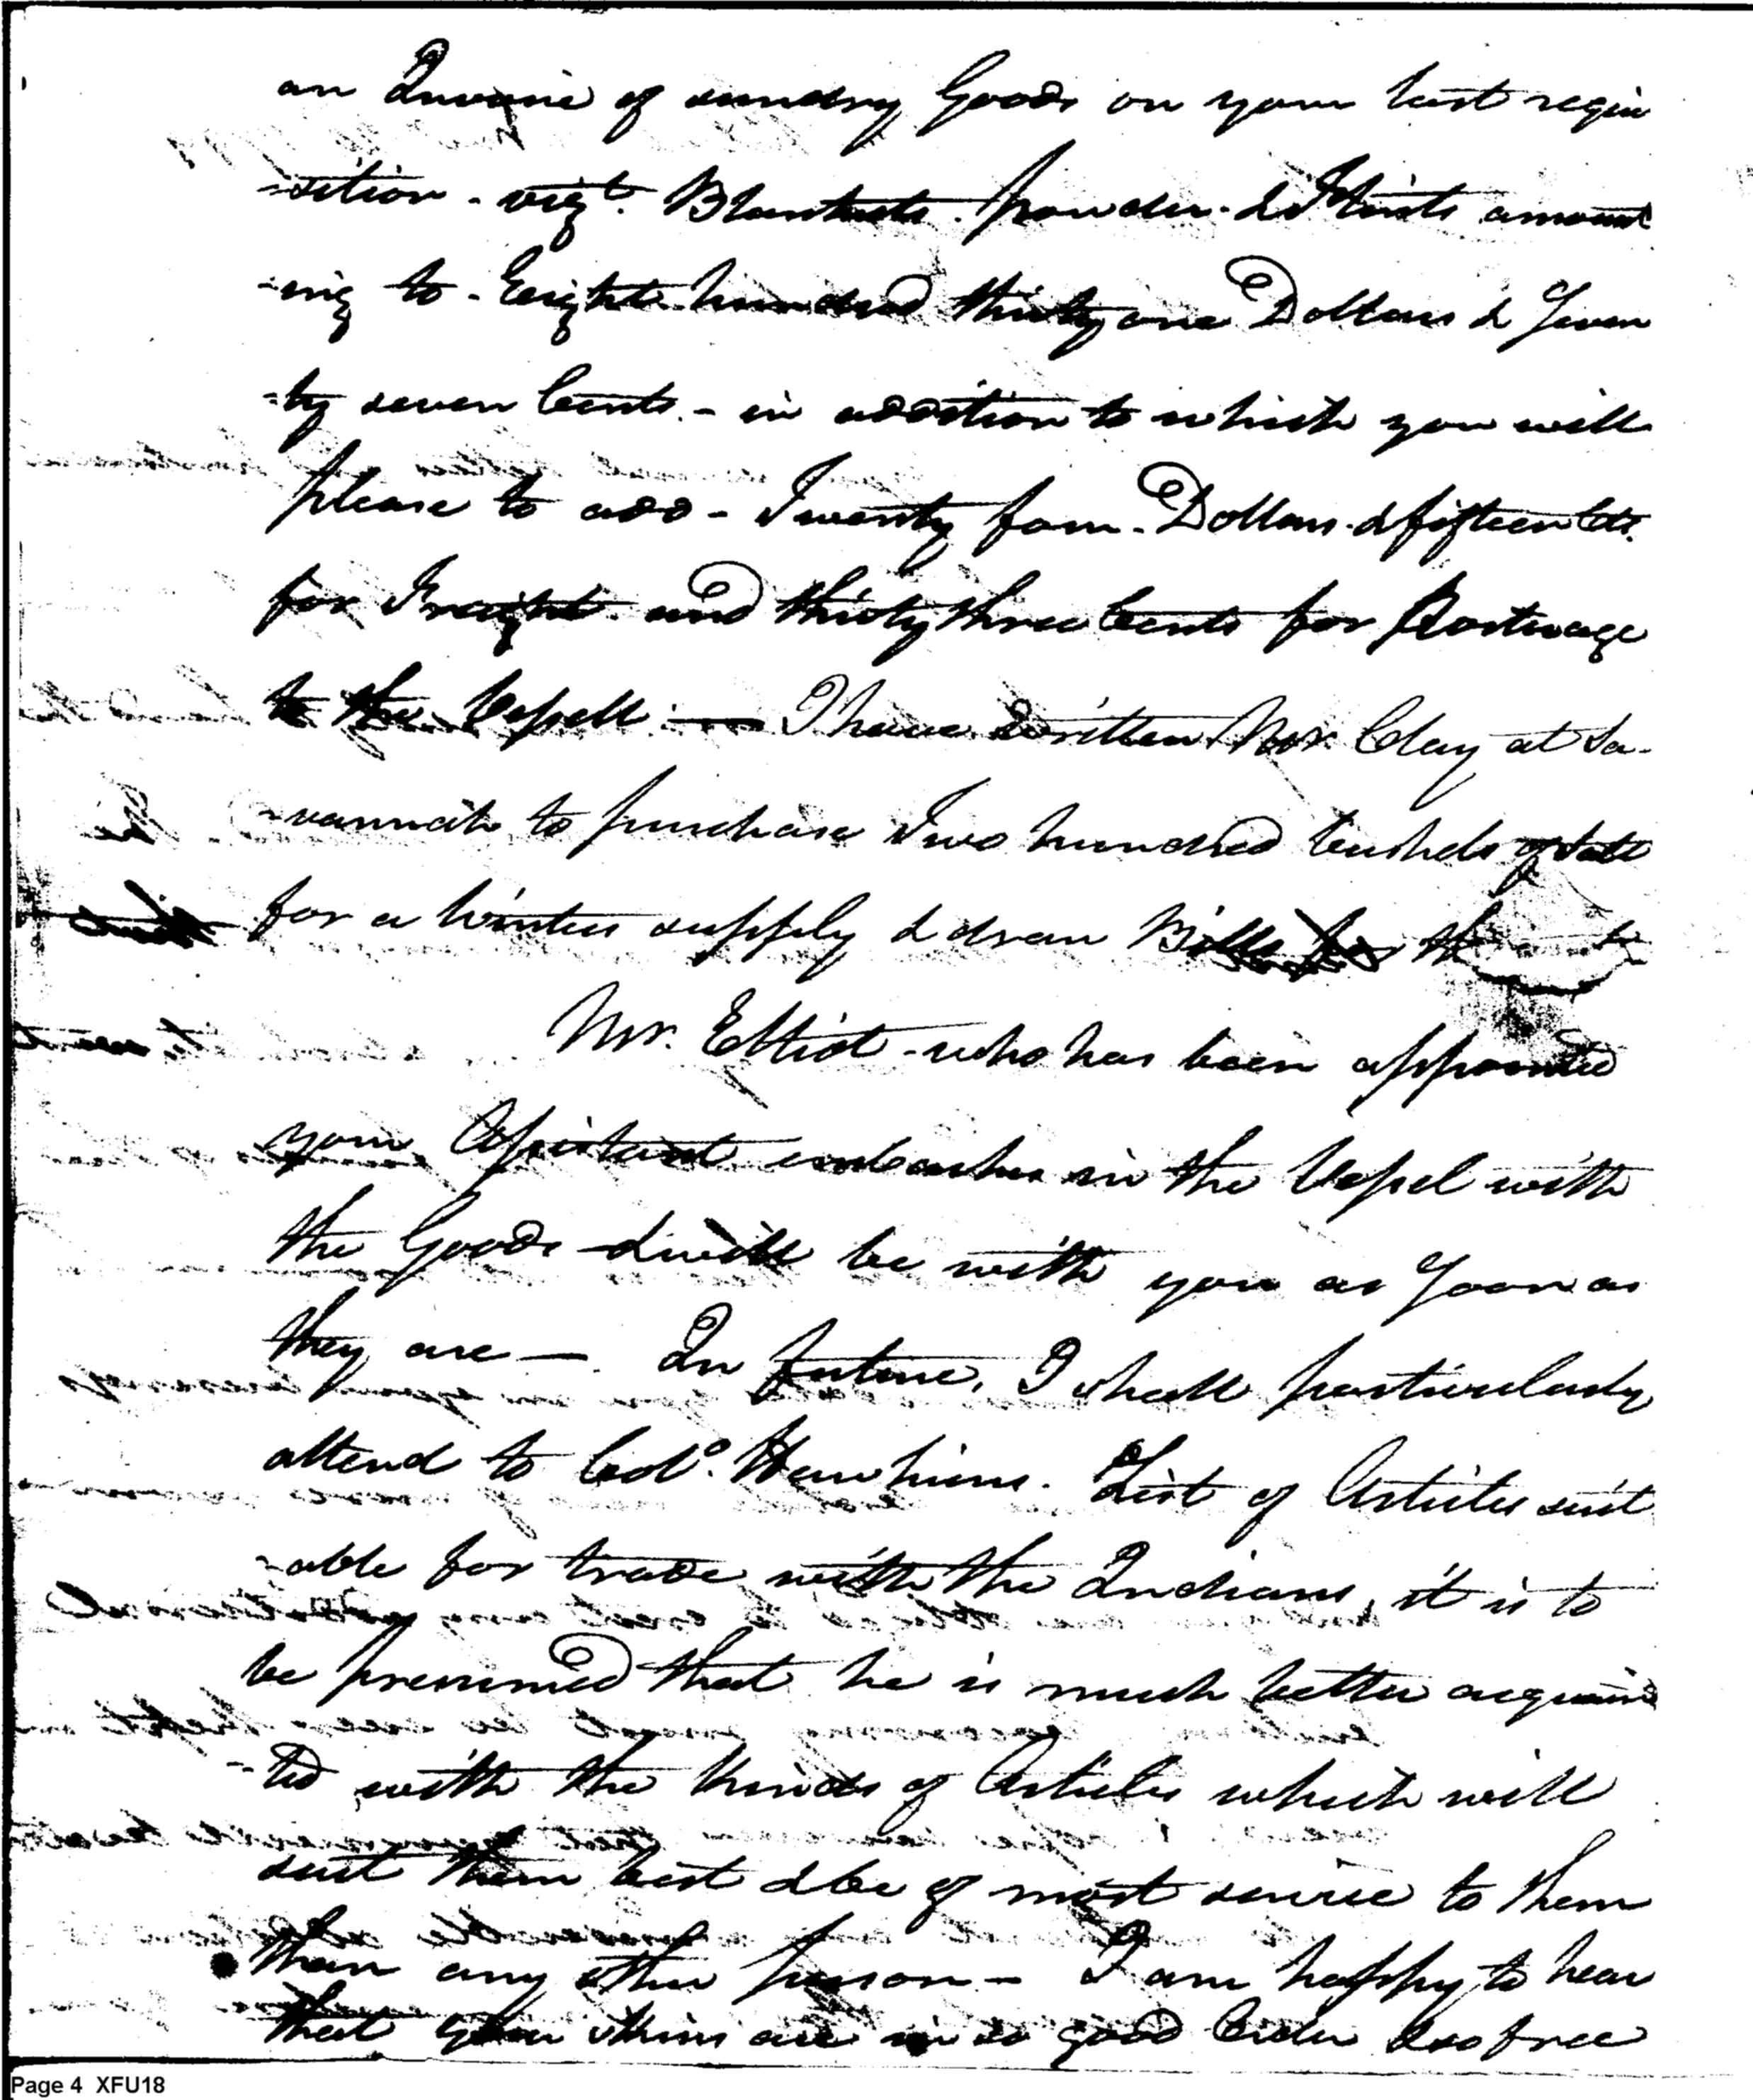 an Invoice of sundry Goods on your last requi
-sition - vizt. Blankets. powder. & Flints amount
-ing to - Eight hundred thirty one Dollars & Seven
-ty seven Cents. - in addition to which you will
please to add - Twenty four - Dollars. & fifteen Cts.
for Freight. and thirty three Cents for Porterage
to the Vessell. — I have written Mr. Clay at Sa-
-vannah to purchase Two hundred bushels of Salt
for a Winter supply & draw Bills for th
Mr. Elliot - who has been appointed
your Assistant embarks in the Vessel with
the Goods & will be with you as Soon as
they are — In future, I shall particularly
attend to Colo. Hawkins. List of Articles suit
-able for trade with the Indians, it is to
be presumed that he is much better acquain
-ted with the kinds of Articles which will
suit them best & be of most service to them
than any other person - I am happy to hear
that your skins are in so good Order & so free
Page 4 XFU18